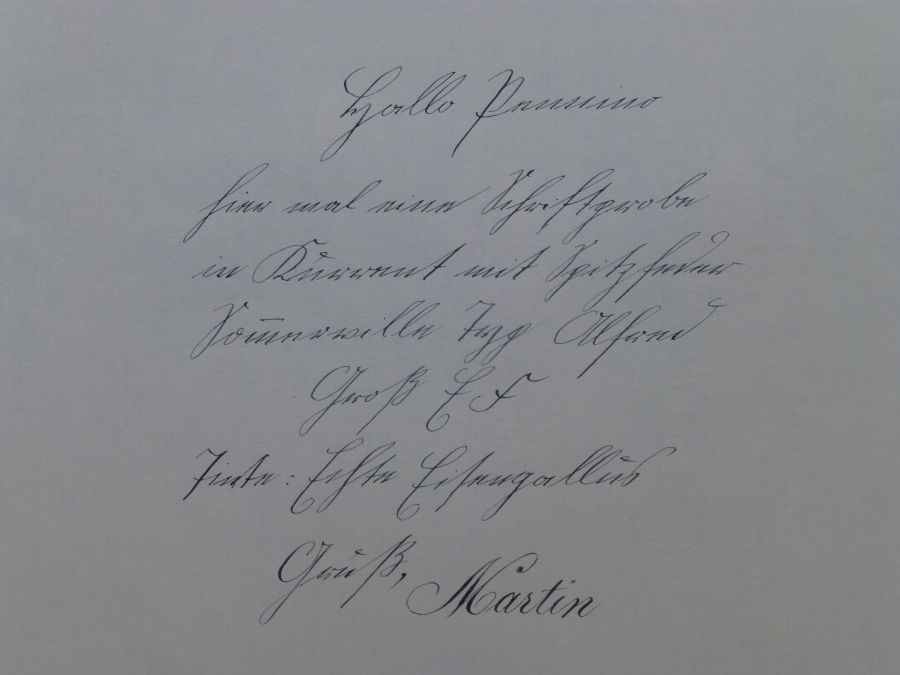 Hallo Pennino
hier mal eine Schriftprobe
in Kurrent mit Spitzfeder
Som̅erville Typ Alfred
Groß EF
Tinte: Echte Eisengallus
Gruß, Martin